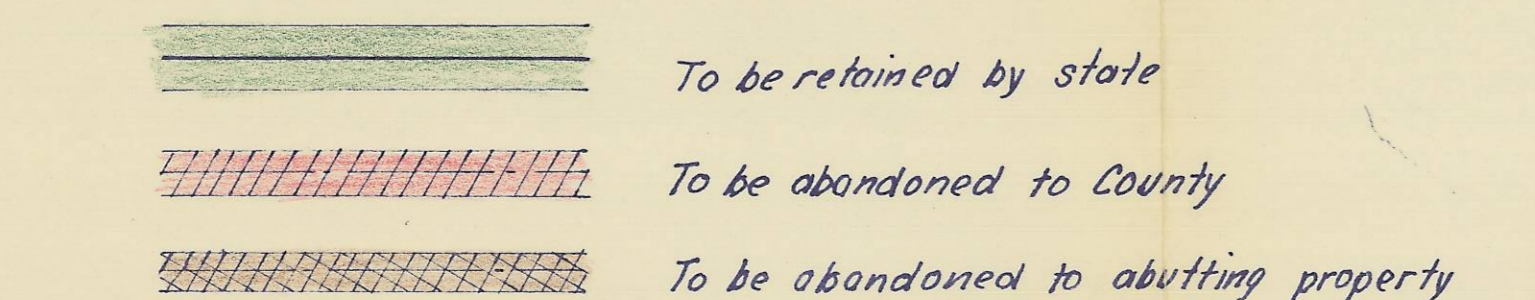 To be retained by state
To be abandoned to County
To be abandoned to abutting property